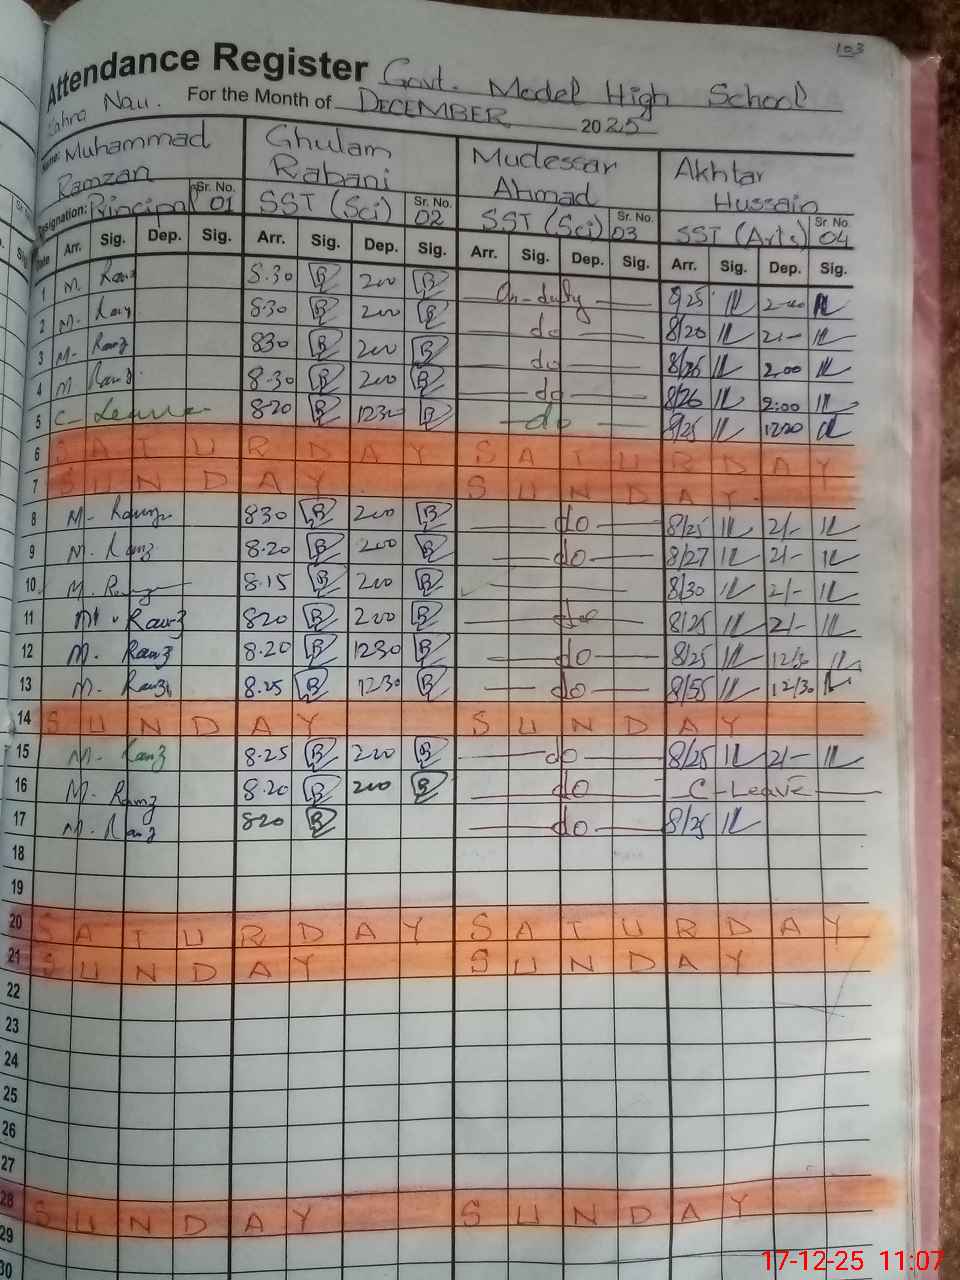 103
Attendance Register Govt. Model High School
Kahna Nau. For the Month of DECEMBER 2025
Name: Muhammad Ramzan Ghulam Rabani Mudessar Ahmad Akhtar Hussain
Designation: Principal Sr. No. 01 SST (Sci) Sr. No. 02 SST (Sci) Sr. No. 03 SST (Arts) Sr. No. 04
Date Arr. Sig. Dep. Sig. Arr. Sig. Dep. Sig. Arr. Sig. Dep. Sig. Arr. Sig. Dep. Sig.
1 M. Ramz 8.30 B 200 B On-duty 8/25 2-00
2 M. Ramz 830 B 200 B do 8/20 2/-
3 M. Ramz 830 B 200 B do 8/26 2.00
4 M. Ramz 8.30 B 200 B do 8/26 2:00
5 C-Leave 820 B 1230 B do 8/25 1230
6 SATURDAY SATURDAY
7 SUNDAY SUNDAY
8 M- Ramz 830 B 200 B do 8/25 2/-
9 M. Ramz 8.20 B 200 B do 8/27 2/-
10 M. Ramz 8.15 B 200 B 8/30 2/-
11 M. Ramz 820 B 200 B do 8/25 2/-
12 M. Ramz 8.20 B 1230 B do 8/25 12/30
13 M. Ramz 8.25 B 1230 B do 8/55 12/30
14 SUNDAY SUNDAY
15 M- Ramz 8.25 B 200 B do 8/25 2/-
16 M- Ramz 8.20 B 200 B do C-Leave
17 M. Ramz 820 B do 8/25
18
19
20 SATURDAY SATURDAY
21 SUNDAY SUNDAY
22
23
24
25
26
27
28 SUNDAY SUNDAY
29
30
17-12-25 11:07